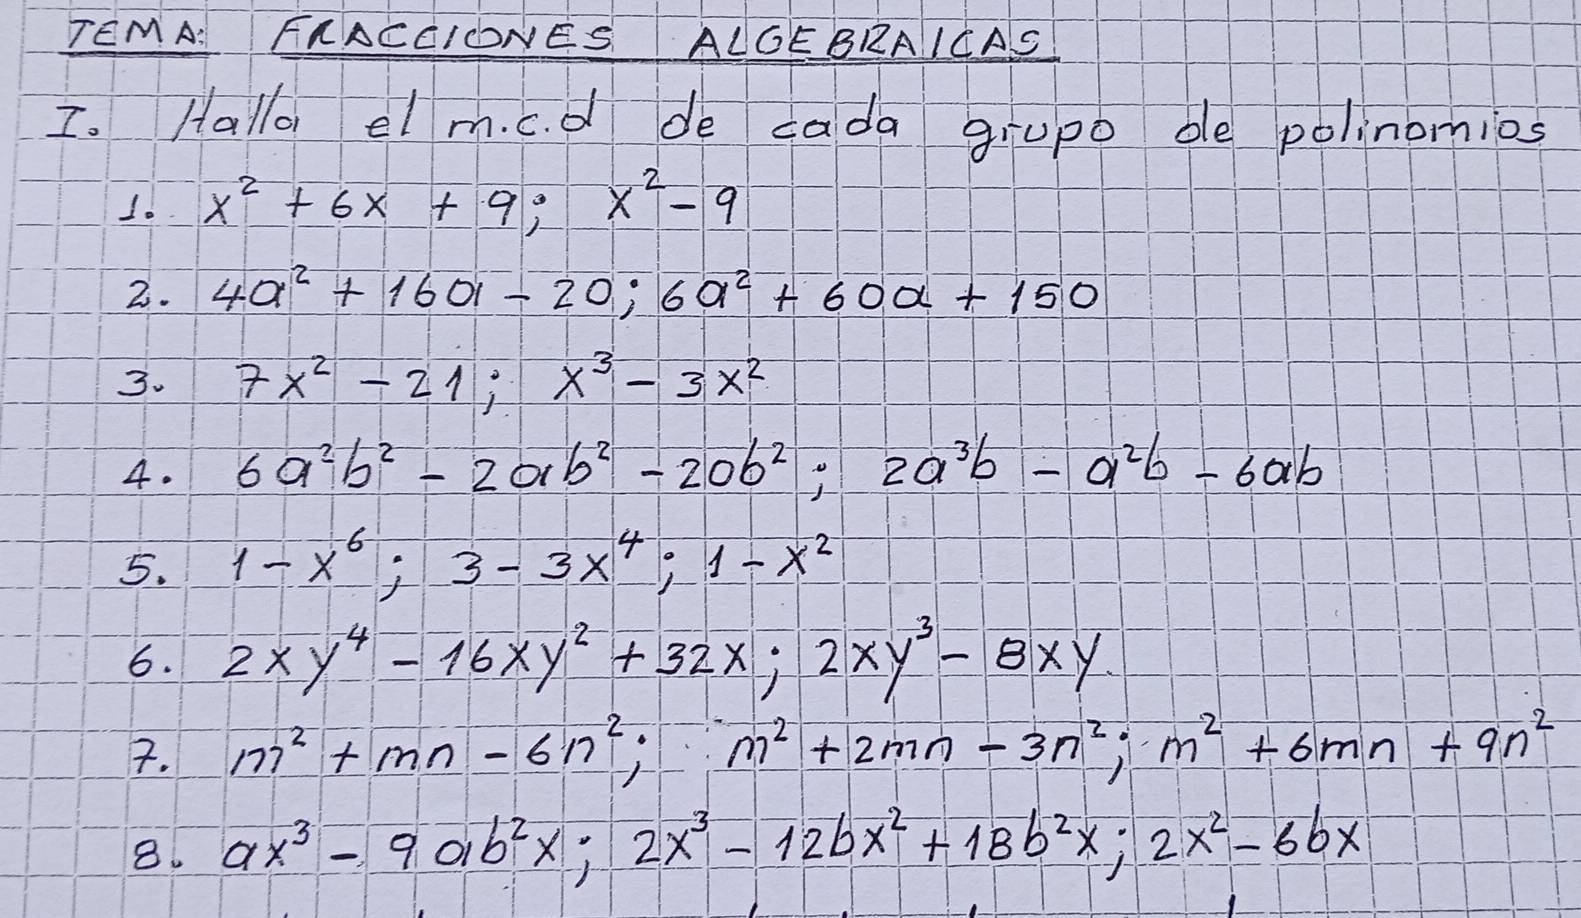 TEMA: FRACCIONES ALGEBRAICAS
I. Halla el m.c.d de cada grupo de polinomios
1. x² + 6x + 9; x² - 9
2. 4a² + 16a - 20; 6a² + 60a + 150
3. 7x² - 21; x³ - 3x²
4. 6a²b² - 2ab² - 20b²; 2a³b - a²b - 6ab
5. 1 - x⁶; 3 - 3x⁴; 1 - x²
6. 2xy⁴ - 16xy² + 32x; 2xy³ - 8xy
7. m² + mn - 6n²; m² + 2mn - 3n²; m² + 6mn + 9n²
8. ax³ - 9ab²x; 2x³ - 12bx² + 18b²x; 2x² - 6bx